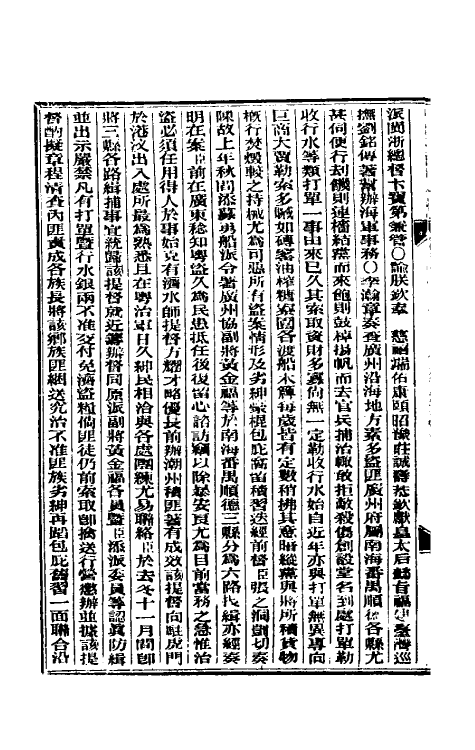 派閩浙總督卞寶第兼管○諭朕欽奉　慈禧端佑康頤昭豫莊誠壽恭欽獻皇太后懿旨福建臺灣巡
撫劉銘傳著幫辦海軍事務○李瀚章奏查廣州沿海地方素多盜匪廣州府屬南海番禺順德各縣尤
甚伺便行刦饑則連檣結黨而來飽則鼓棹揚帆而去官兵捕治輙敢拒敵殺傷創設堂名到處打單勒
收行水等類打單一事由來已久其索取貲財多寡尚無一定勒收行水始自近年亦與打單無異專向
巨商大賈勒索多贓如磚窰油榨糖寮圍各渡船木簰每歲皆有定數稍拂其意嘯聚黨與將所積貨物
概行焚燬較之持械尤為可惡所有盜案情形及劣紳豪棍包庇窩留積習迭經前督臣張之洞剴切奏
陳故上年秋間添募勇船派令署廣州協副將黃金福等於南海番禺順德三縣分為六路扎緝亦經奏
明在案臣前在廣東稔知粵盜久為民患抵任後復留心諮訪竊以除暴安良尤為目前當務之急惟治
盜必須任用得人於事始克有濟水師提督方耀才略優長前辦潮州積匪著有成效該提督向駐虎門
於港汊出入處所最為熟悉且在粵治軍日久紳民相洽與各處團練尤易聯絡臣於去冬十一月間即
將三縣各路緝捕事宜統歸該提督就近籌辦督同原派副將黃金福各員暨臣添派委員等認眞防緝
並出示嚴禁凡有打單暨行水銀兩不准交付免濟盜糧倘匪徒仍前索取卽擒送行營懲辦並據該提
督酌擬章程清查內匪責成各族長將該鄉族匪綑送究治不准匪族劣紳再蹈包庇舊習一面聯合沿